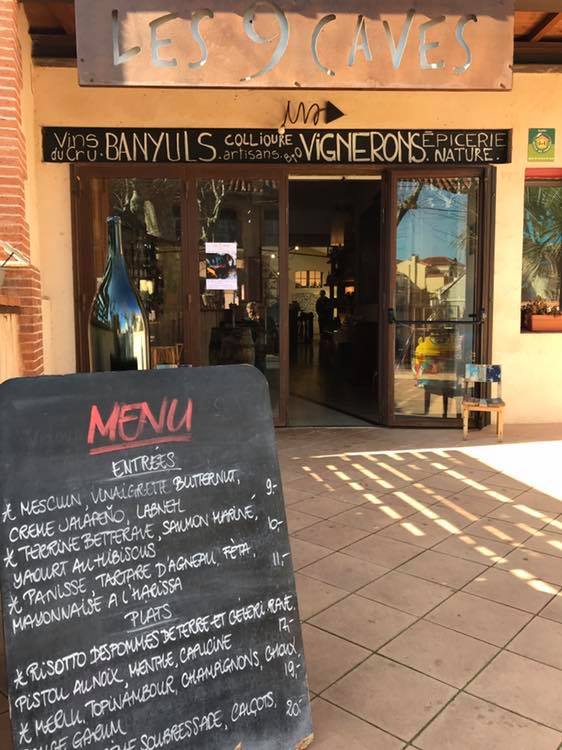 LES 9 CAVES
Vins du Cru. BANYULS. COLLIOURE artisans. BIO VIGNERONS. ÉPICERIE NATURE.
MENU
ENTRÉES
* MESCLUN, VINAIGRETTE BUTTERNUT, 9.-
CREME JALAPEÑO, LABNEH
* TERRINE BETTERAVE, SAUMON MARINÉ, 10.-
YAOURT AU HIBISCUS
* PANISSE, TARTARE D'AGNEAU, FÈTA, 11.-
MAYONNAISE A L'HARISSA
PLATS
* RISOTTO DES POMMES DE TERRE ET CÉLERI RAVE, 17.-
PISTOU AU NOIX, MENTHE, CAPUCINE
* MERLU, TOPINAMBOUR, CHAMPIGNONS, 19.-
GARUM
SOUBRESSADE, CALÇOTS, 20.-